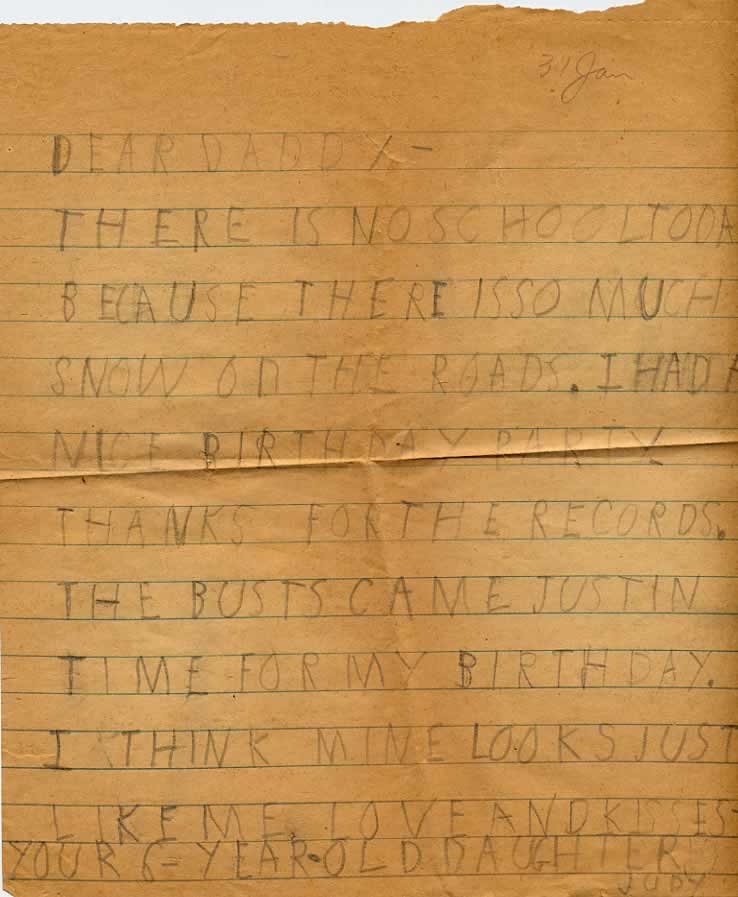 31 Jan
DEAR DADDY-
THERE IS NO SCHOOL TODA
BECAUSE THERE IS SO MUCH
SNOW ON THE ROADS. I HAD A
NICE BIRTHDAY PARTY
THANKS FOR THE RECORDS.
THE BUSTS CAME JUST IN
TIME FOR MY BIRTHDAY.
I THINK MINE LOOKS JUST
LIKE ME. LOVE AND KISSES-
YOUR 6-YEAR-OLD DAUGHTER
JUDY